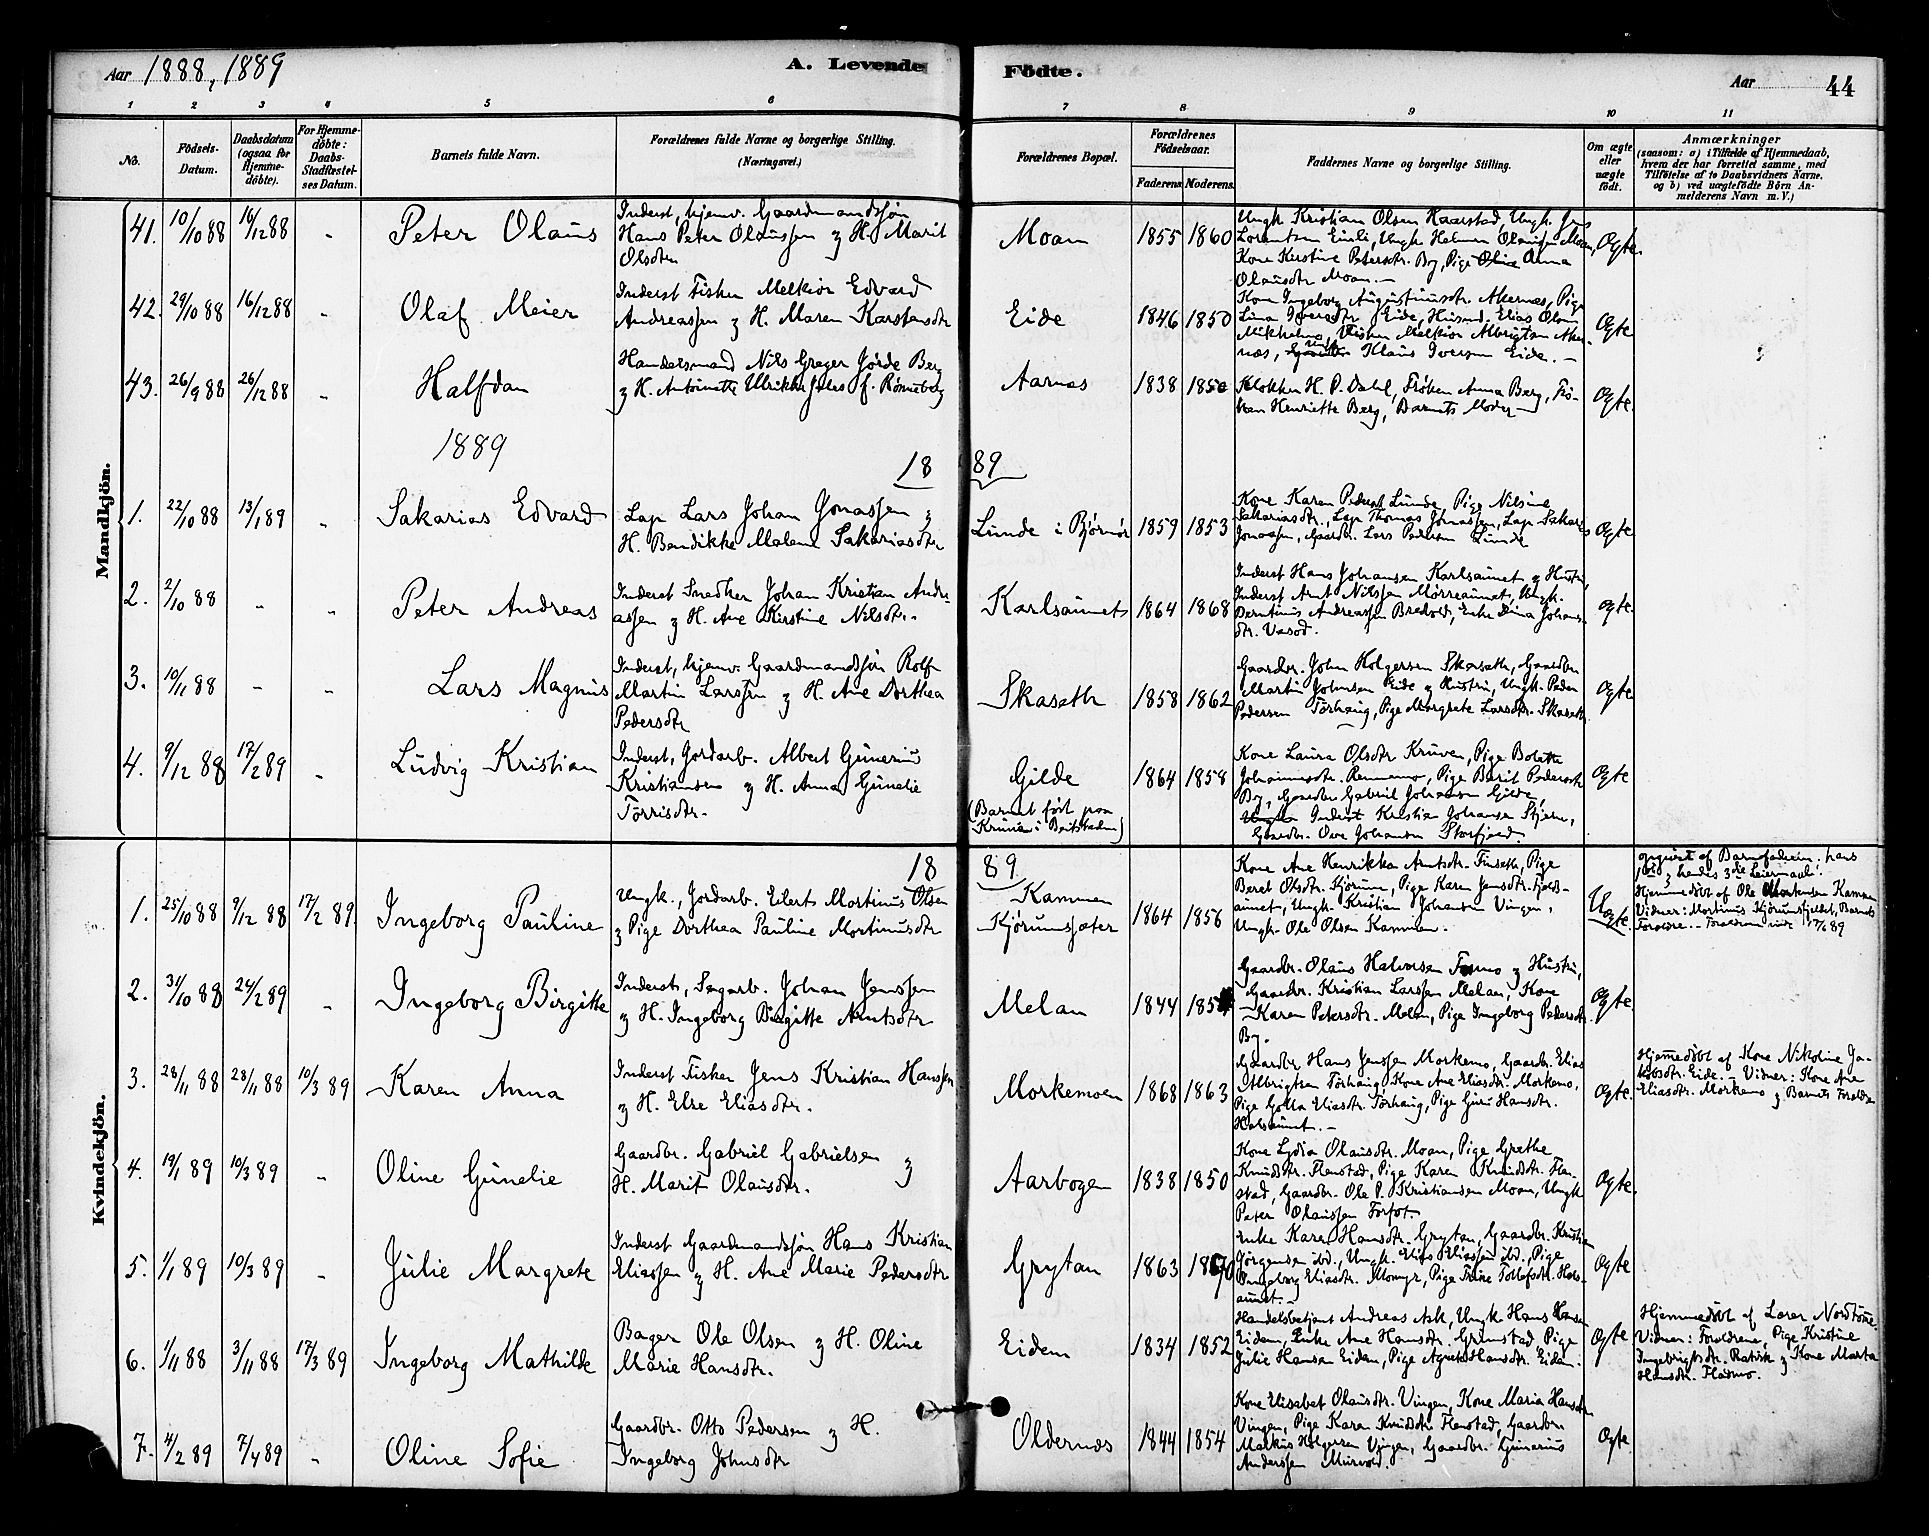 Aar 1888, 1889
A. Levende
Födte.
Aar
44
1 2 3 4 5 6 7 8 9 10 11
No.
Födsels-
Datum.
Daabsdatum
(ogsaa for
Hjemme-
döbte).
For Hjemme-
döbte:
Daabs-
Stadfæstel-
ses Datum.
Barnets fulde Navn.
Forældrenes fulde Navne og borgerlige Stilling.
(Næringsvei.)
Forældrenes Bopæl.
Forældrenes
Födselsaar.
Faderens. Moderens.
Faddernes Navne og borgerlige Stilling.
Om ægte
eller
uægte
födt.
Anmærkninger
(saasom: a) i Tilfælde af Hjemmedaab,
hvem der har forrettet samme, med
Tilföielse af to Daabsvidners Navne.
og b) ved uægtefödte Börn An-
melderens Navn m.V.)
Mandkjön.
41. 10/10 88 16/12 88 - Peter Olaus
Inderst, hjemv. Gaardmandssøn
Hans Peter Olaussen & H. Marit
Olsdtr
Moan 1855 1860
Ungk. Kristian Olsen Haarstad, Ungk. Jens
Lorentsen Einli, Ungk Halmar Olaussen Moan,
Kone Kirstine Petersdtr. By, Pige Anna
Olausdtr Moan.-
Ægte.
42. 29/10 88 16/12 88 - Olaf Meier
Inderst Fisker Melkior Edvard
Andreassen & H. Maren Karstensdtr
Eide 1846 1850
Kone Ingeborg Augustinusdtr. Akernæs, Pige
Lina Iversdtr Eide, Husmd. Elias Olsen
Mikkelmo, Fisker Melkior Albrigtsen Aker-
næs, Klaus Iversen Eide. -
Ægte
43. 26/9 88 26/12 88 - Halfdan
Handelsmand Nils Greger Jørde Berg
& H. Antoinette Ulrikke f. Rønneberg
Aarnæs 1838 1850
Klokker H. P. Dahl, Frøken Anna Berg, Frø-
ken Henriette Berg, Barnets Moder
Ægte.
1889
18 89
1. 22/10 88 13/1 89 - Sakarias Edvard
Lap Lars Johan Jonassen &
H. Bendikke Malene Sakariasdtr
Lunde i Bjørnør 1859 1853
Kone Karen Pedersdtr Lunde, Pige Nilsine
Sakariasdtr., Lap Thomas Jonassen, Lap Sakarias
Jonassen, Gaardbr. Lars Pedersen Lunde
Ægte
2. 2/10 88 - - Peter Andreas
Inderst Snedker Johan Kristian Andre-
assen & H. Ane Kirstine Nilsdtr.
Karlsaunet 1864 1868
Inderst Hans Johansen Karlsaunet & Hustru,
Inderst Arnt Nilssen Mørreaunet, Ungk.
Berntinus Andreassen Bredvold, Enke Dina Johans-
dtr. Vasod.
Ægte
3. 10/11 88 - - Lars Magnus
Inderst, hjemv. Gaardmandssøn Rolf
Martin Larssen & H. Ane Dorthea
Pedersdtr
Skaseth 1858 1862
Gaardbr. John Holgersen Skaseth, Gaardbr
Martin Johnsen Eide & Hustru, Ungk. Peder
Pedersen Torhaug, Pige Margrete Larsdtr. Skaseth
Ægte
4. 9/12 88 17/2 89 - Ludvig Kristian
Inderst, Jordarb. Albert Gunerius
Kristiansen & H. Anna Gunelie
Torrisdtr.
Gilde
(Barnet født paa
Kruven i Beitstaden)
1864 1858
Kone Laura Olsdtr Kruven, Pige Bolette
Johannesdtr. Rennemo, Pige Berit Pedersdtr
By, Gaardbr Gabriel Johansen Gilde,
Inderst Kristian Johansen Stjern,
Gaardbr. Ove Johansen Storfjord
Ægte
Kvindekjön.
18 89
1. 25/10 88 9/12 88 17/2 89. Ingeborg Pauline
Ungk., Jordarb. Eilert Mortinus Olsen
& Pige Dorthea Pauline Mortinusdtr
Kammen
Kjørumsæter
1864 1856
Kone Ane Henrikka Arntsdtr. Finseth, Pige
Beret Olsdtr. Kjørum, Pige Karen Jensdtr. Fjølds-
aunet, Ungk. Kristian Johansen Vingen,
Ungk. Ole Olsen Kammen.
Uægte.
opgivet af Barnefaderen, hans
1ste & hendes 3die Leiermaal.
Hjemmedøbt af Ole Mortensen Kammen
Vidner: Mortinus Kjørumsfjeldet, Barnets
Forældre. - Forældrene 17/2 89
2. 31/10 88 24/2 89 - Ingeborg Birgitte
Inderst, Sagarb. Johan Jenssen
& H. Ingeborg Birgitte Arntsdtr
Melan 1844
Gaardbr. Olaus Halvorsen Formo & Hustru,
Gaardbr. Kristian Larssen Melan, Kone
Karen Petersdtr. Melan, Pige Ingeborg Pedersdtr
By.
Ægte.
3. 28/11 88 28/11 88 10/3 89 Karen Anna
Inderst Fisker Jens Kristian Hanssen
& H. Else Eliasdtr.
Morkemoen 1868 1863
Gaardbr Hans Jenssen Morkemo, Gaardbr. Elias
Albrigtsen Torhaug, Kone Ane Eliasdtr. Morkemo,
Pige Golla Eliasdtr. Torhaug, Pige Guru Hansdtr.
Halsaunet.-
Ægte.
Hjemmedøbt af Kone Nikoline Ja-
kobsdtr. Eide. - Vidner: Kone Ane
Eliasdtr. Morkemo & Barnets Forældre
4. 19/1 89 10/3 89 - Oline Gunelie
Gaardbr. Gabriel Gabrielsen &
H. Marit Olausdtr.
Aarbogen 1838 1850
Kone Lydia Olausdtr. Moan, Pige Grethe
Knudsdtr. Flenstad, Pige Karen Knudsdtr. Flen-
stad, Gaardbr. Ole P. Kristiansen Moan, Ungk
Peter Olaussen Forfot.
Ægte.
5. 1/1 89 10/3 89 - Julie Margrete
Inderst Gaardmandssøn Hans Kristian
Eliassen & H. Ane Marie Pedersdtr
Grytan 1863
Enke Karen Hansdtr. Grytan, Gaardbr. Kristian
Jørgensen ibd., Ungk. Elias Eliassen ibd., Pige
Ingeborg Eliasdtr. Momyr, Pige Trine Tollefsdtr. Hals-
aunet.-
Ægte
6. 1/11 88 3/11 88 17/3 89 Ingeborg Mathilde
Bager Ole Olsen & H. Oline
Marie Hansdtr.
Eidem 1834 1852
Handelsbetjent Andreas Ask, Ungk Hans Hansen
Eidem, Enke Ane Hansdtr. Grimstad, Pige
Julie Hansen Eidem, Pige Agnete Hansdtr. Eidem.
Ægte
Hjemmedøbt af Lærer Nordtømme.
Vidner: Forældrene, Pige Kristine
Ingebrigtsdtr. Ratvik & Kone Marta
Hansdtr. Flasmo.
7. 4/2 89 7/4 89 - Oline Sofie
Gaardbr. Otto Pedersen & H.
Ingeborg Johnsdtr
Oldernæs 1844 1854
Kone Elisabet Olausdtr. Vingen, Kone Maria Hansdtr
Vingen, Pige Karen Knudsdtr. Flenstad, Gaardbr.
Markus Holgersen Vingen, Gaardbr. Gunarius
Anderssen Murvold.
Ægte